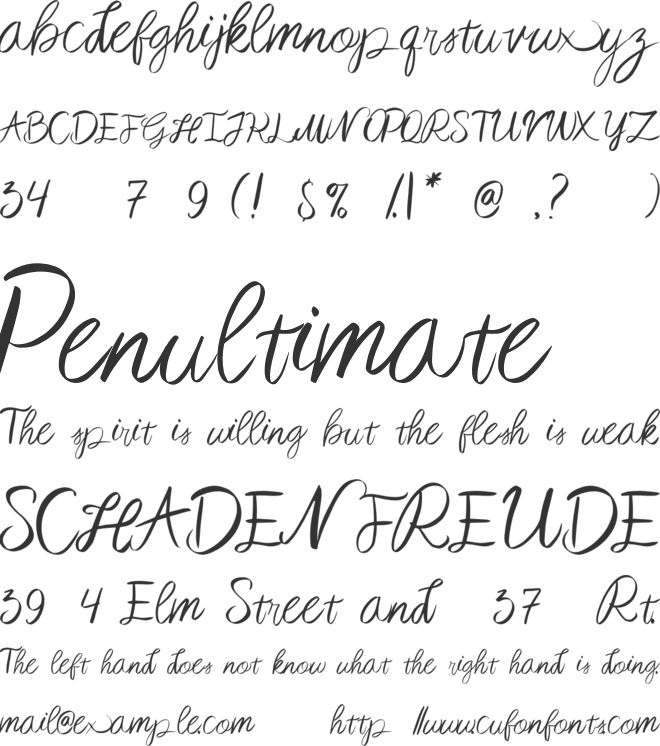 abcdefghijklmnopqrstuvwxyz
ABCDEFGHIJKLMNOPQRSTUVWXYZ
34 7 9 (! $% /.|* @ ,? )
Penultimate
The spirit is willing but the flesh is weak
SCHADENFREUDE
39 4 Elm Street and 37 Rt.
The left hand does not know what the right hand is doing.
mail@example.com http //www.cufonfonts.com